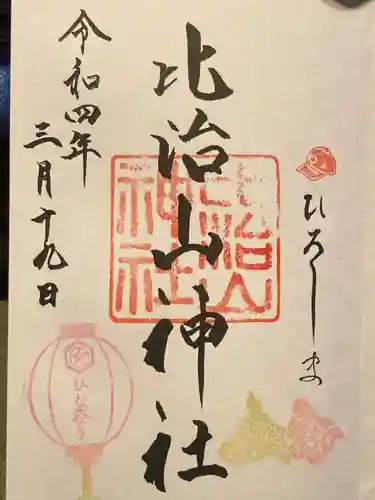 ひろしま
比治山神社
比治山
神社
令和四年
三月十九日
ひなまつり